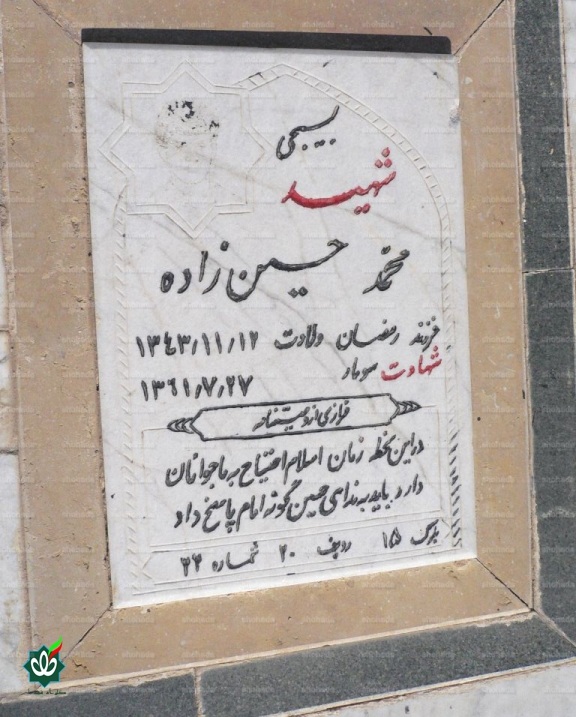 بسیجی
شهید
محمد حسین زاده
فرزند رمضان ولادت ۱۳۴۳/۱۱/۱۲
شهادت سومار ۱۳۶۱/۷/۲۷
فرازی از وصیتنامه
در این لحظه زمان اسلام احتیاج به ما جوانان
دارد باید به ندای حسین گونه امام پاسخ داد
بلوک ۱۵ ردیف ۲۰ شماره ۲۴